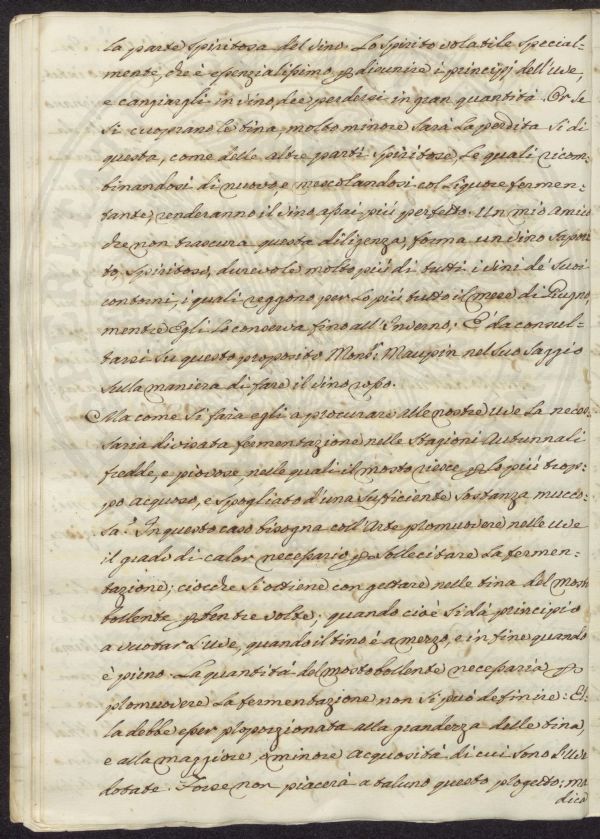 la parte spiritosa del vino. Lo spirito volatile special-
mente, che è essenzialissimo p disunire i principj dell'uve,
e cangiargli in vino, dee perdersi in gran quantità. Or se
si cuoprano le tina, molto minore sarà la perdita sì di
questa, come delle altre parti spiritose, le quali ricom-
binandosi di nuovo, e mescolandosi col liquore fermen-
tante, renderanno il vino assai più perfetto. Un mio amico
che non trascura questa diligenza, forma un vino sapori
to, spiritoso, durevole molto più di tutti i vini de' suoi
contorni, i quali reggono per lo più tutto il mese di Giugno
mentre Egli lo conserva fino all'Inverno; E' da consul-
tarsi su questo proposito Mons.r Maupin nel suo Saggio
sulla maniera di fare il vino rosso.
Ma come si farà egli a procurare alle nostre uve la neces-
saria divisata fermentazione nelle Stagioni Autunnali
fredde, e piovose, nelle quali il mosto riesce p lo più trop-
po acquoso, e spogliato d'una sufficiente sostanza mucco-
sa? In questo caso bisogna coll'Arte promuovere nelle uve
il grado di calor necessario p sollecitare la fermen-
tazione; ciocchè si ottiene con gettare nelle tina del mosto
bollente p ben tre volte; quando cioè si dà principio
a vuotar l'uve, quando il tino è a mezzo, e in fine quando
è pieno. La quantità del mosto bollente necessaria p
promuovere la fermentazione non si può definire: El-
la debbe esser proporzionata alla grandezza delle tina,
e alla maggiore, o minore acquosità di cui sono l'uve
dotate. Forse non piacerà a taluno questo progetto; ma
dico